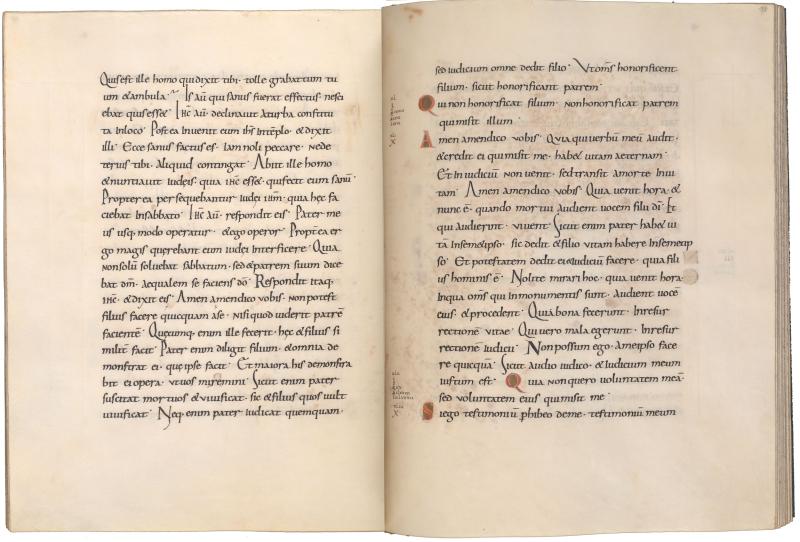 Quis est ille homo qui dixit tibi · tolle grabattum tu
um & ambula · Is aũ qui sanus fuerat effectus · nesci
ebat quis ess& · Ihc aũ declinavit a turba constitu
ta in loco · Post ea invenit eum ihs in tẽplo · & dixit
illi · Ecce sanus factus es · iam noli peccare · ne de
terius tibi · aliquid contingat · Abiit ille homo
& nuntiavit iudęis · quia ihc ess& · qui fecit eum sanũ ·
Propter ea persequebantur iudęi ihm · quia hęc fa
ciebat in sabbato · Ihc aũ · respondit eis · Pater me
us usq; modo operatur · & ego operor · Propt&ea er
go magis querebant eum iudęi interficere · Quia
non solũ solvebat sabbatum · sed & patrem suum dice
bat dm̃ · aequalem se faciens dõ · Respondit itaq;
ihc · & dixit eis · Amen amen dico vobis · non potest
filius facere quicquam a se · nisi quod viderit patrẽ
facientẽ · Quęcumq; enim ille fecerit · hęc & filius si
milit̃ facit · Pater enim diligit filium · & omnia de
monstrat ei · quę ipse facit · Et maiora his demonstra
bit ei opera · ut vos miremini · Sicut enim pater
suscitat mortuos & vivificat · sic & filius quos vult
vivificat · Neq; enim pater iudicat quemquam ·
sed iudicium omne dedit filio · Ut omñs honorificent
filium · sicut honorificant patrem ·
Qui non honorificat filium · non honorificat patrem
qui misit illum ·
Amen amen dico vobis · Quia qui verbũ meũ audit ·
& credit ei qui misit me · hab& vitam aeternam ·
Et in iudiciũ non venit · sed transit a morte in vi
tam · Amen amen dico vobis · Quia venit hora · &
nunc ẽ · quando mortui audient vocem filii dĩ · Et
qui audierint · vivent · Sicut enim pater hab& vi
tã in semetipso · sic dedit & filio vitam habere in semetip
so · Et potestatem dedit ei & iudiciũ facere · quia fili
us hominis ẽ · Nolite mirari hoc · quia venit hora ·
in qua omñs qui in monumentis sunt · audient vocẽ
eius · & procedent · Qui bona fecerunt · in resur
rectionẽ vitae · Qui vero mala egerunt · in resur
rectionẽ iudicii · Non possum ego · a me ipso face
re quicquã · Sicut audio iudico · & iudicium meum
iustum est · Quia non quero voluntatem meã ·
sed voluntatem eius qui misit me ·
Si ego testimoniũ phibeo de me · testimoniũ meum